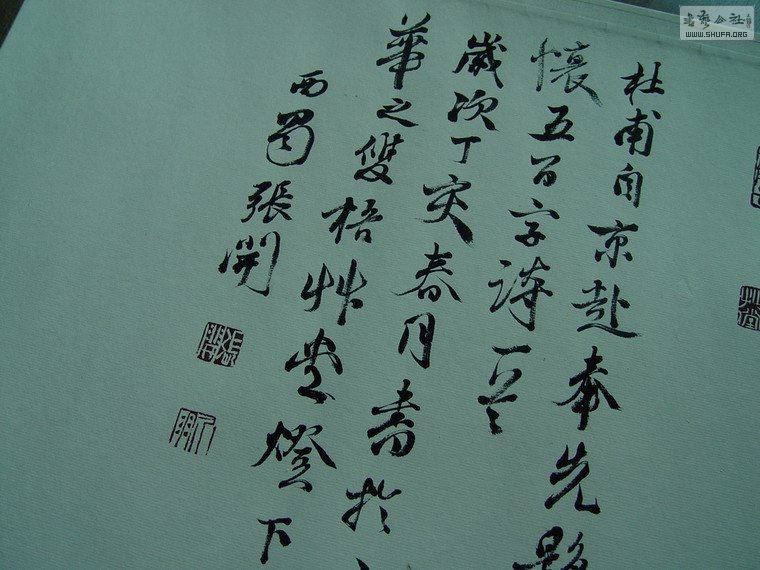 杜甫自京赴奉先縣
懷五百字詩一首
歲次丁亥春月書於
華之雙梧艸堂燈下
西蜀張開
張開
書藝公社
WWW.SHUFA.ORG